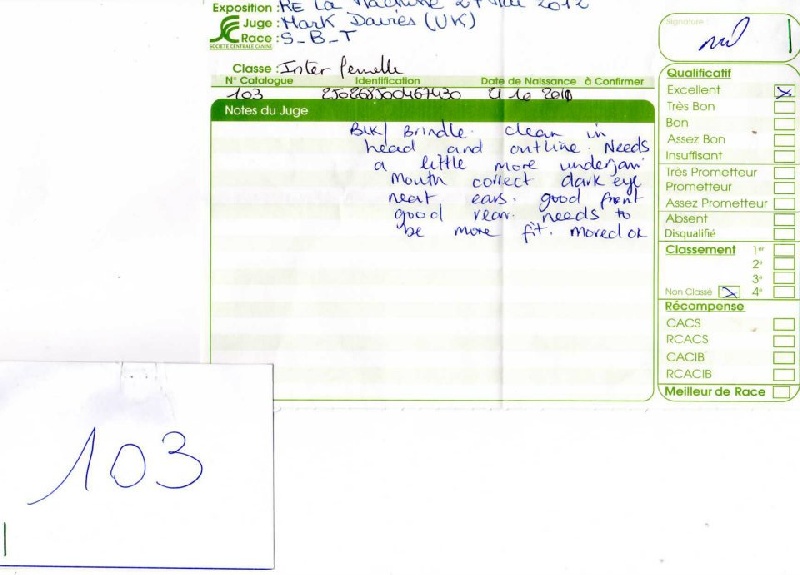 Exposition : RE La 27 Mai 2012
Juge : Mark Davies (UK)
Race : S_B_T
SOCIETE CENTRALE CANINE
Classe : Inter femelle
N° Catalogue Identification Date de Naissance à Confirmer
103 2010
Notes du Juge
Blk/ Brindle. clean in
head and outline. Needs
a little more underjaw
Mouth correct dark eye
neat ears. good front
good rear. needs to
be more fit. moved ok
Signature :
Qualificatif
Excellent
Très Bon
Bon
Assez Bon
Insuffisant
Très Prometteur
Prometteur
Assez Prometteur
Absent
Disqualifié
Classement 1er
2e
3e
Non Classé 4e
Récompense
CACS
RCACS
CACIB
RCACIB
Meilleur de Race
103